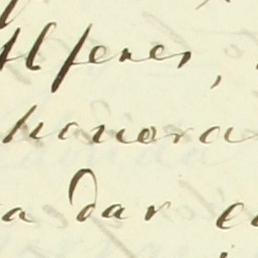 Alferes,
honora
a dar e